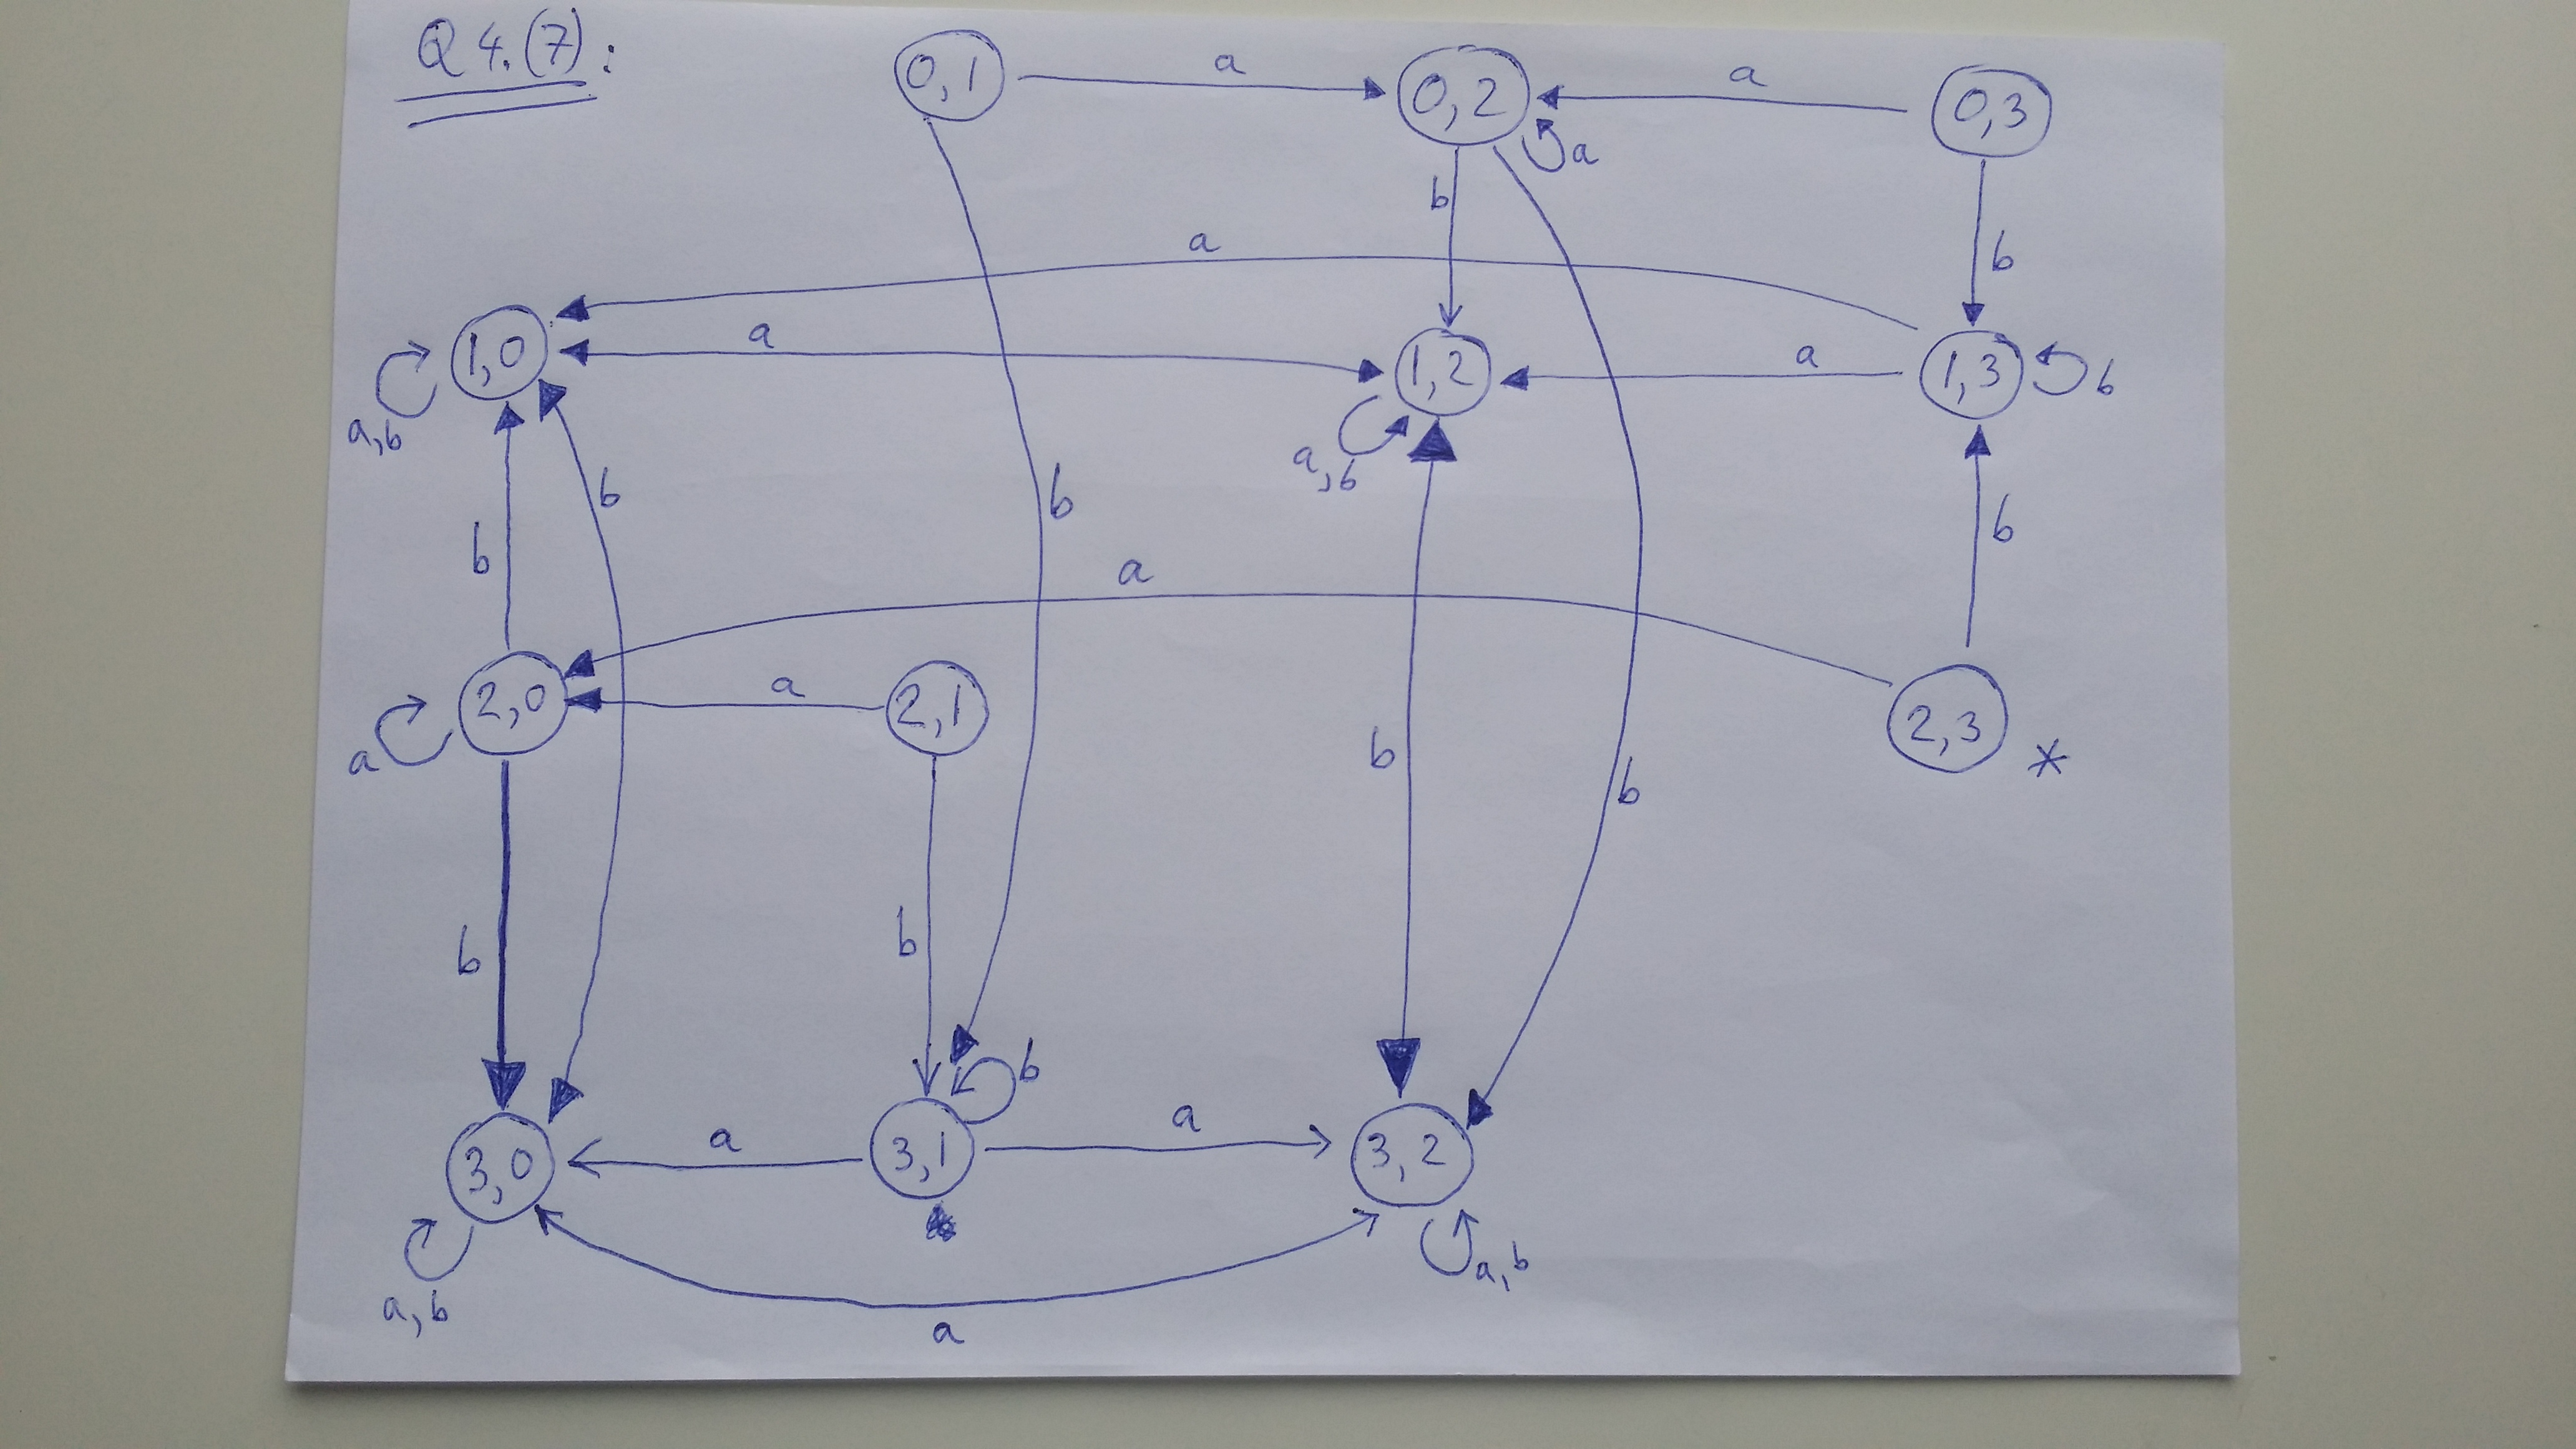 Q 4.(7):
0,1
a
0,2
a
0,3
a
b
b
a
1,0
a
1,2
a
1,3
b
a,b
a,b
b
b
b
b
a
2,0
a
2,1
2,3
*
a
b
b
b
b
b
3,0
a
3,1
a
3,2
a,b
a,b
a